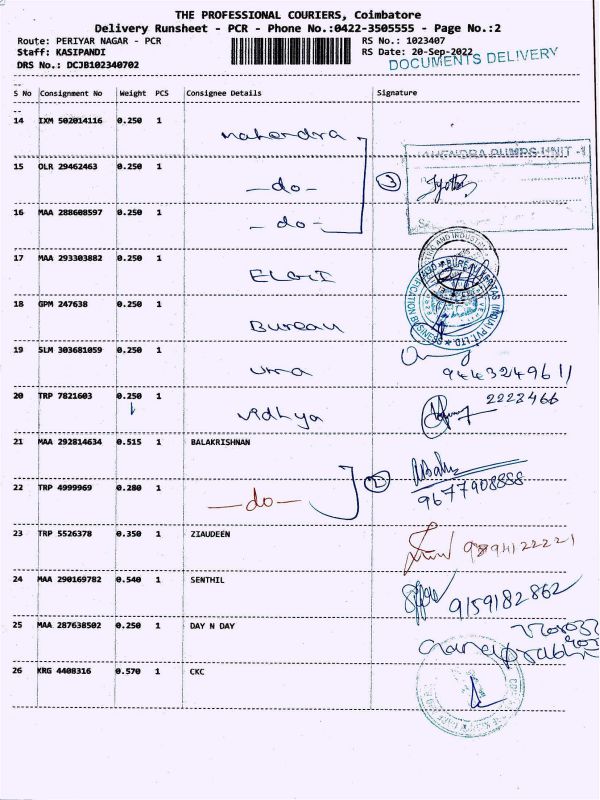 THE PROFESSIONAL COURIERS, Coimbatore
Delivery Runsheet - PCR - Phone No.:0422-3505555 - Page No.:2
Route: PERIYAR NAGAR - PCR
RS No.: 1023407
Staff: KASIPANDI
RS Date: 20-Sep-2022
DRS No.: DCJB102340702
DOCUMENTS DELIVERY
S No Consignment No Weight PCS Consignee Details Signature
14 IXM 502014116 0.250 1 Mahendra
15 OLR 29462463 0.250 1 -do- 3
16 MAA 288608597 0.250 1 -do-
17 MAA 293303882 0.250 1 ELGI
18 GPM 247638 0.250 1 Bureau
19 SLM 303681059 0.250 1 uma 9443249611
20 TRP 7821603 0.250 1 vidhya 2223466
21 MAA 292814634 0.515 1 BALAKRISHNAN
22 TRP 4999969 0.280 1 -do- 2 9677908888
23 TRP 5526378 0.350 1 ZIAUDEEN 9894122221
24 MAA 290169782 0.540 1 SENTHIL 9159182862
25 MAA 287638502 0.250 1 DAY N DAY
26 KRG 4408316 0.570 1 CKC